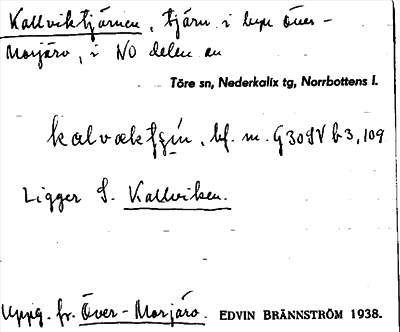 Kallviktjärnen, tjärn i byn Över-
Morjärv, i NO delen av
Töre sn, Nederkalix tg, Norrbottens l.
kalvæktʃæ̣ṇ, bf. m. G 30 S V b 3, 109
Ligger S. Kallviken.
Uppg. fr. Över-Morjärv. EDVIN BRÄNNSTRÖM 1938.